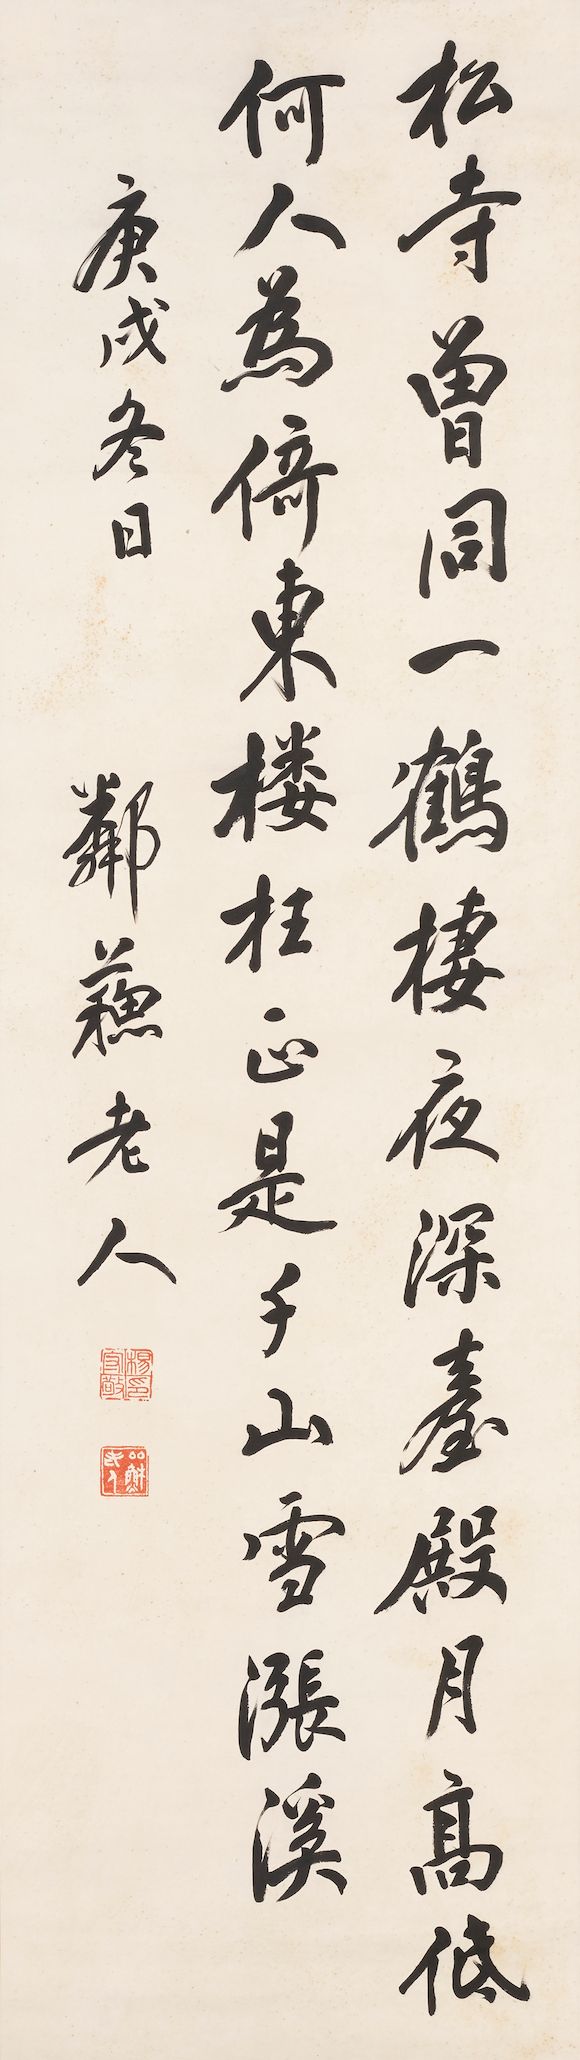 松寺曾同一鶴棲夜深臺殿月高低
何人為倚東楼柱正是千山雪漲溪
庚戌冬日
鄰蘇老人
楊守敬印